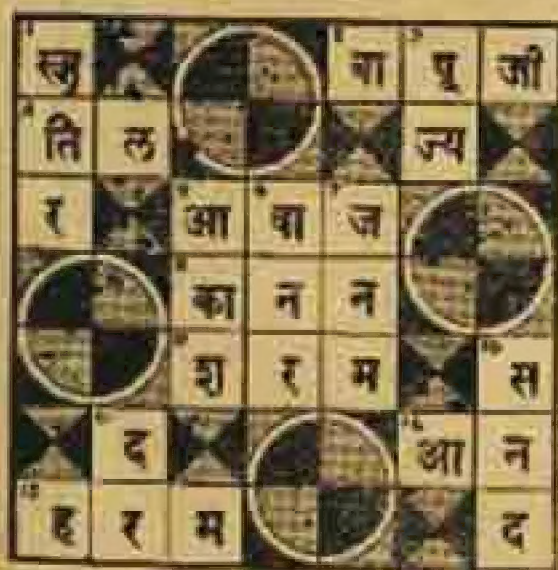 बा पू जी
ति ल ज्य
र आ वा ज
का न न
श र म स
द आ न
ह र म द